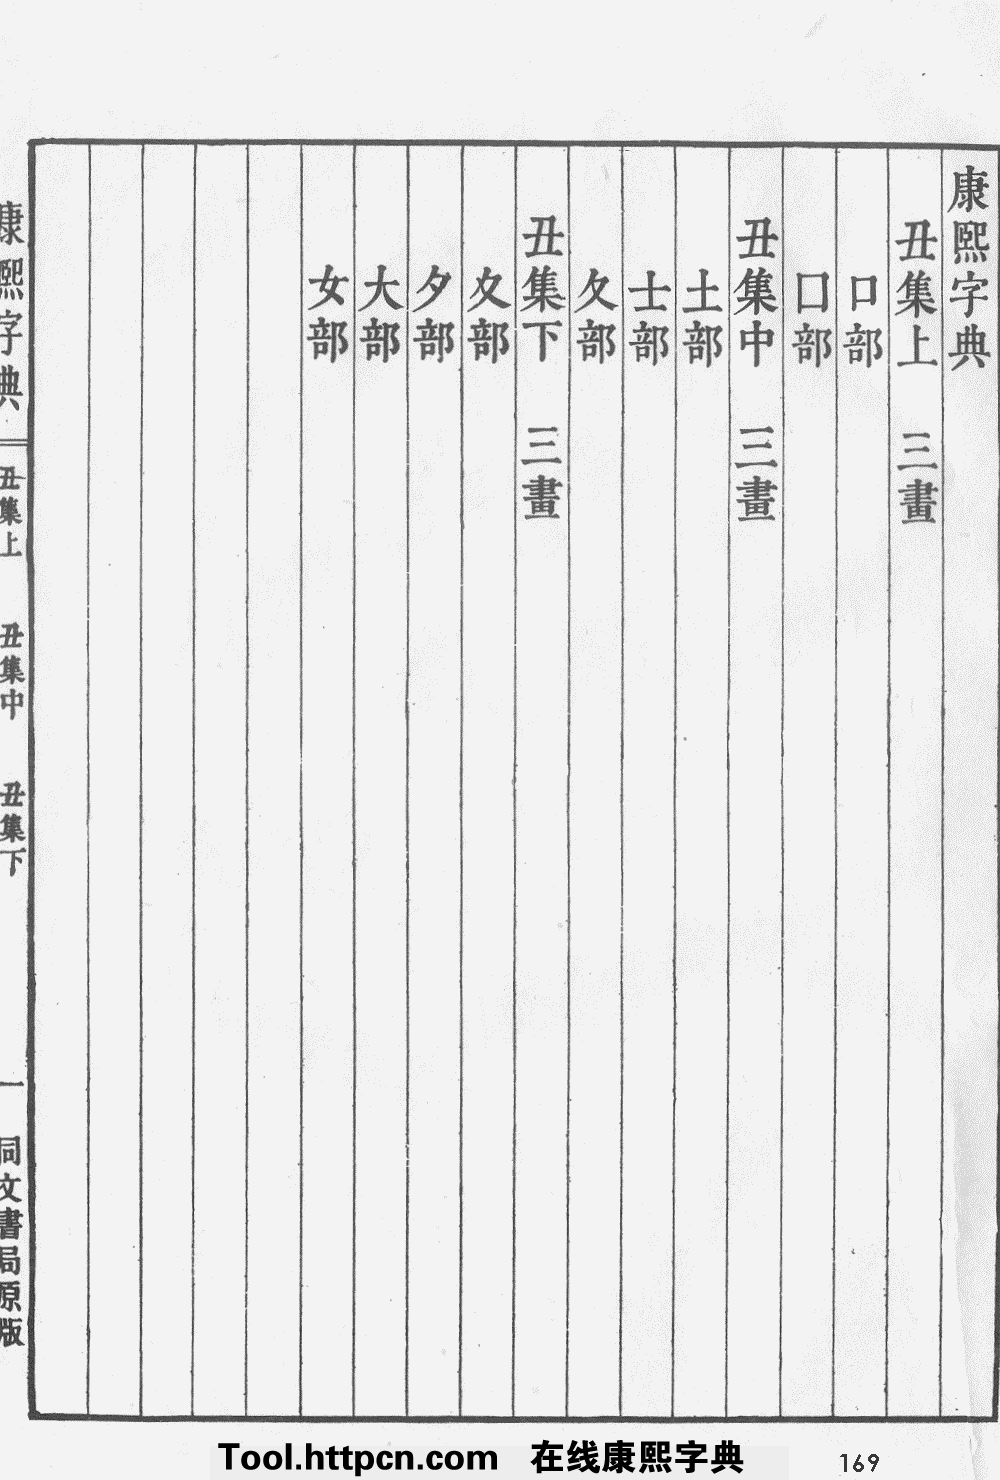 康熙字典
丑集上 三畫
口部
囗部
丑集中 三畫
土部
士部
夂部
丑集下 三畫
夊部
夕部
大部
女部
康熙字典 丑集上 丑集中 丑集下 一 同文書局原版
Tool.httpcn.com 在线康熙字典 169